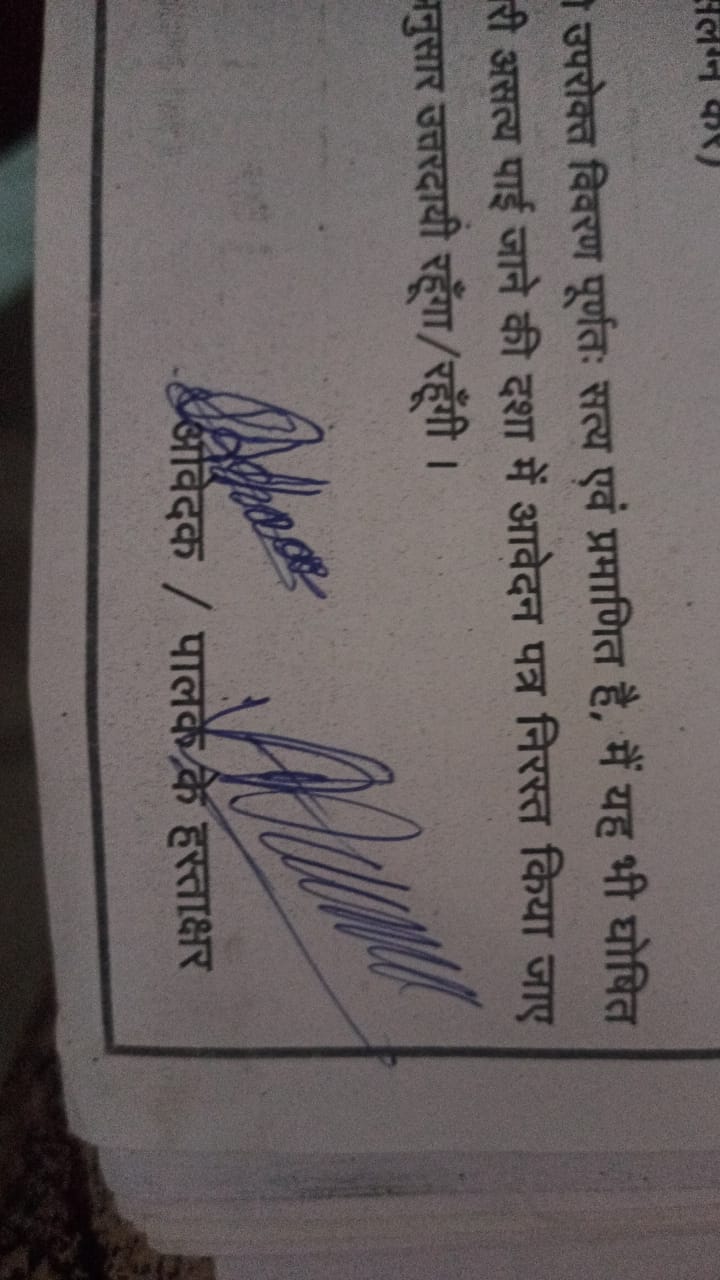 संलग्न करें)
उपरोक्त विवरण पूर्णतः सत्य एवं प्रमाणित है, मैं यह भी घोषित
री असत्य पाई जाने की दशा में आवेदन पत्र निरस्त किया जाए
नुसार उत्तरदायी रहूँगा/रहूँगी ।
आवेदक / पालक के हस्ताक्षर